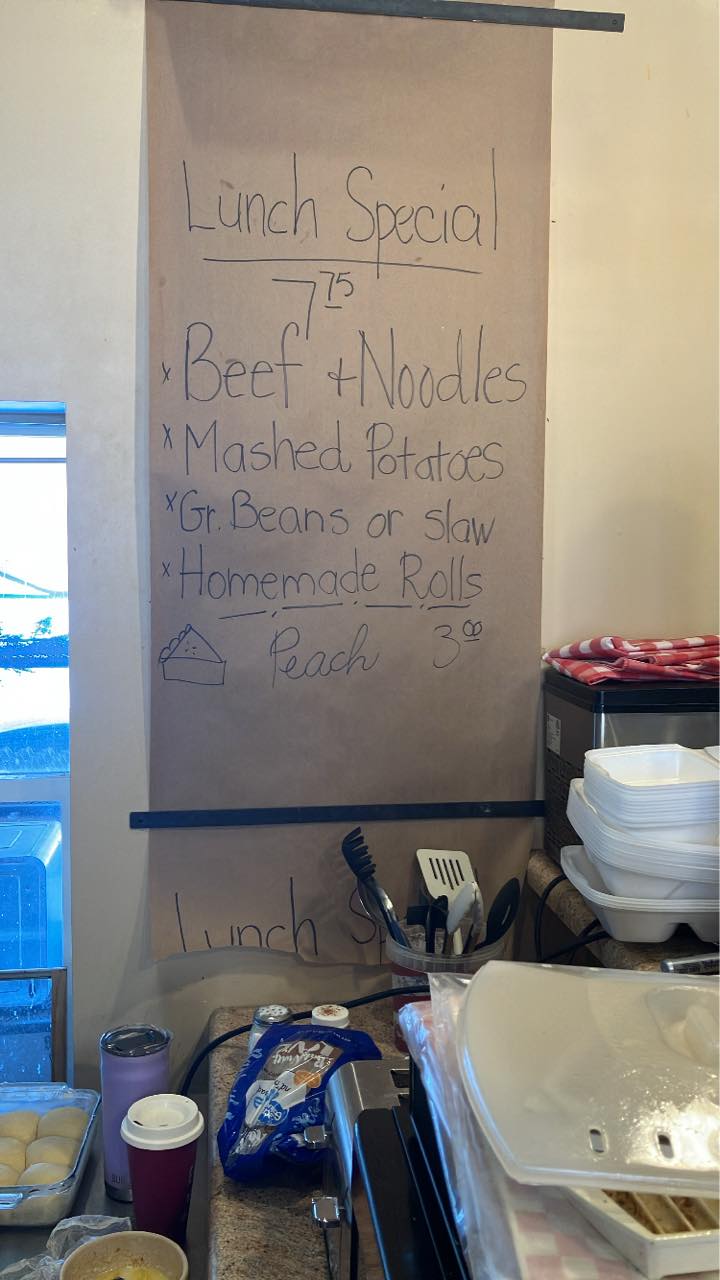 Lunch Special
7 75
x Beef + Noodles
x Mashed Potatoes
x Gr. Beans or slaw
x Homemade Rolls
Peach 3 00
Lunch Sp